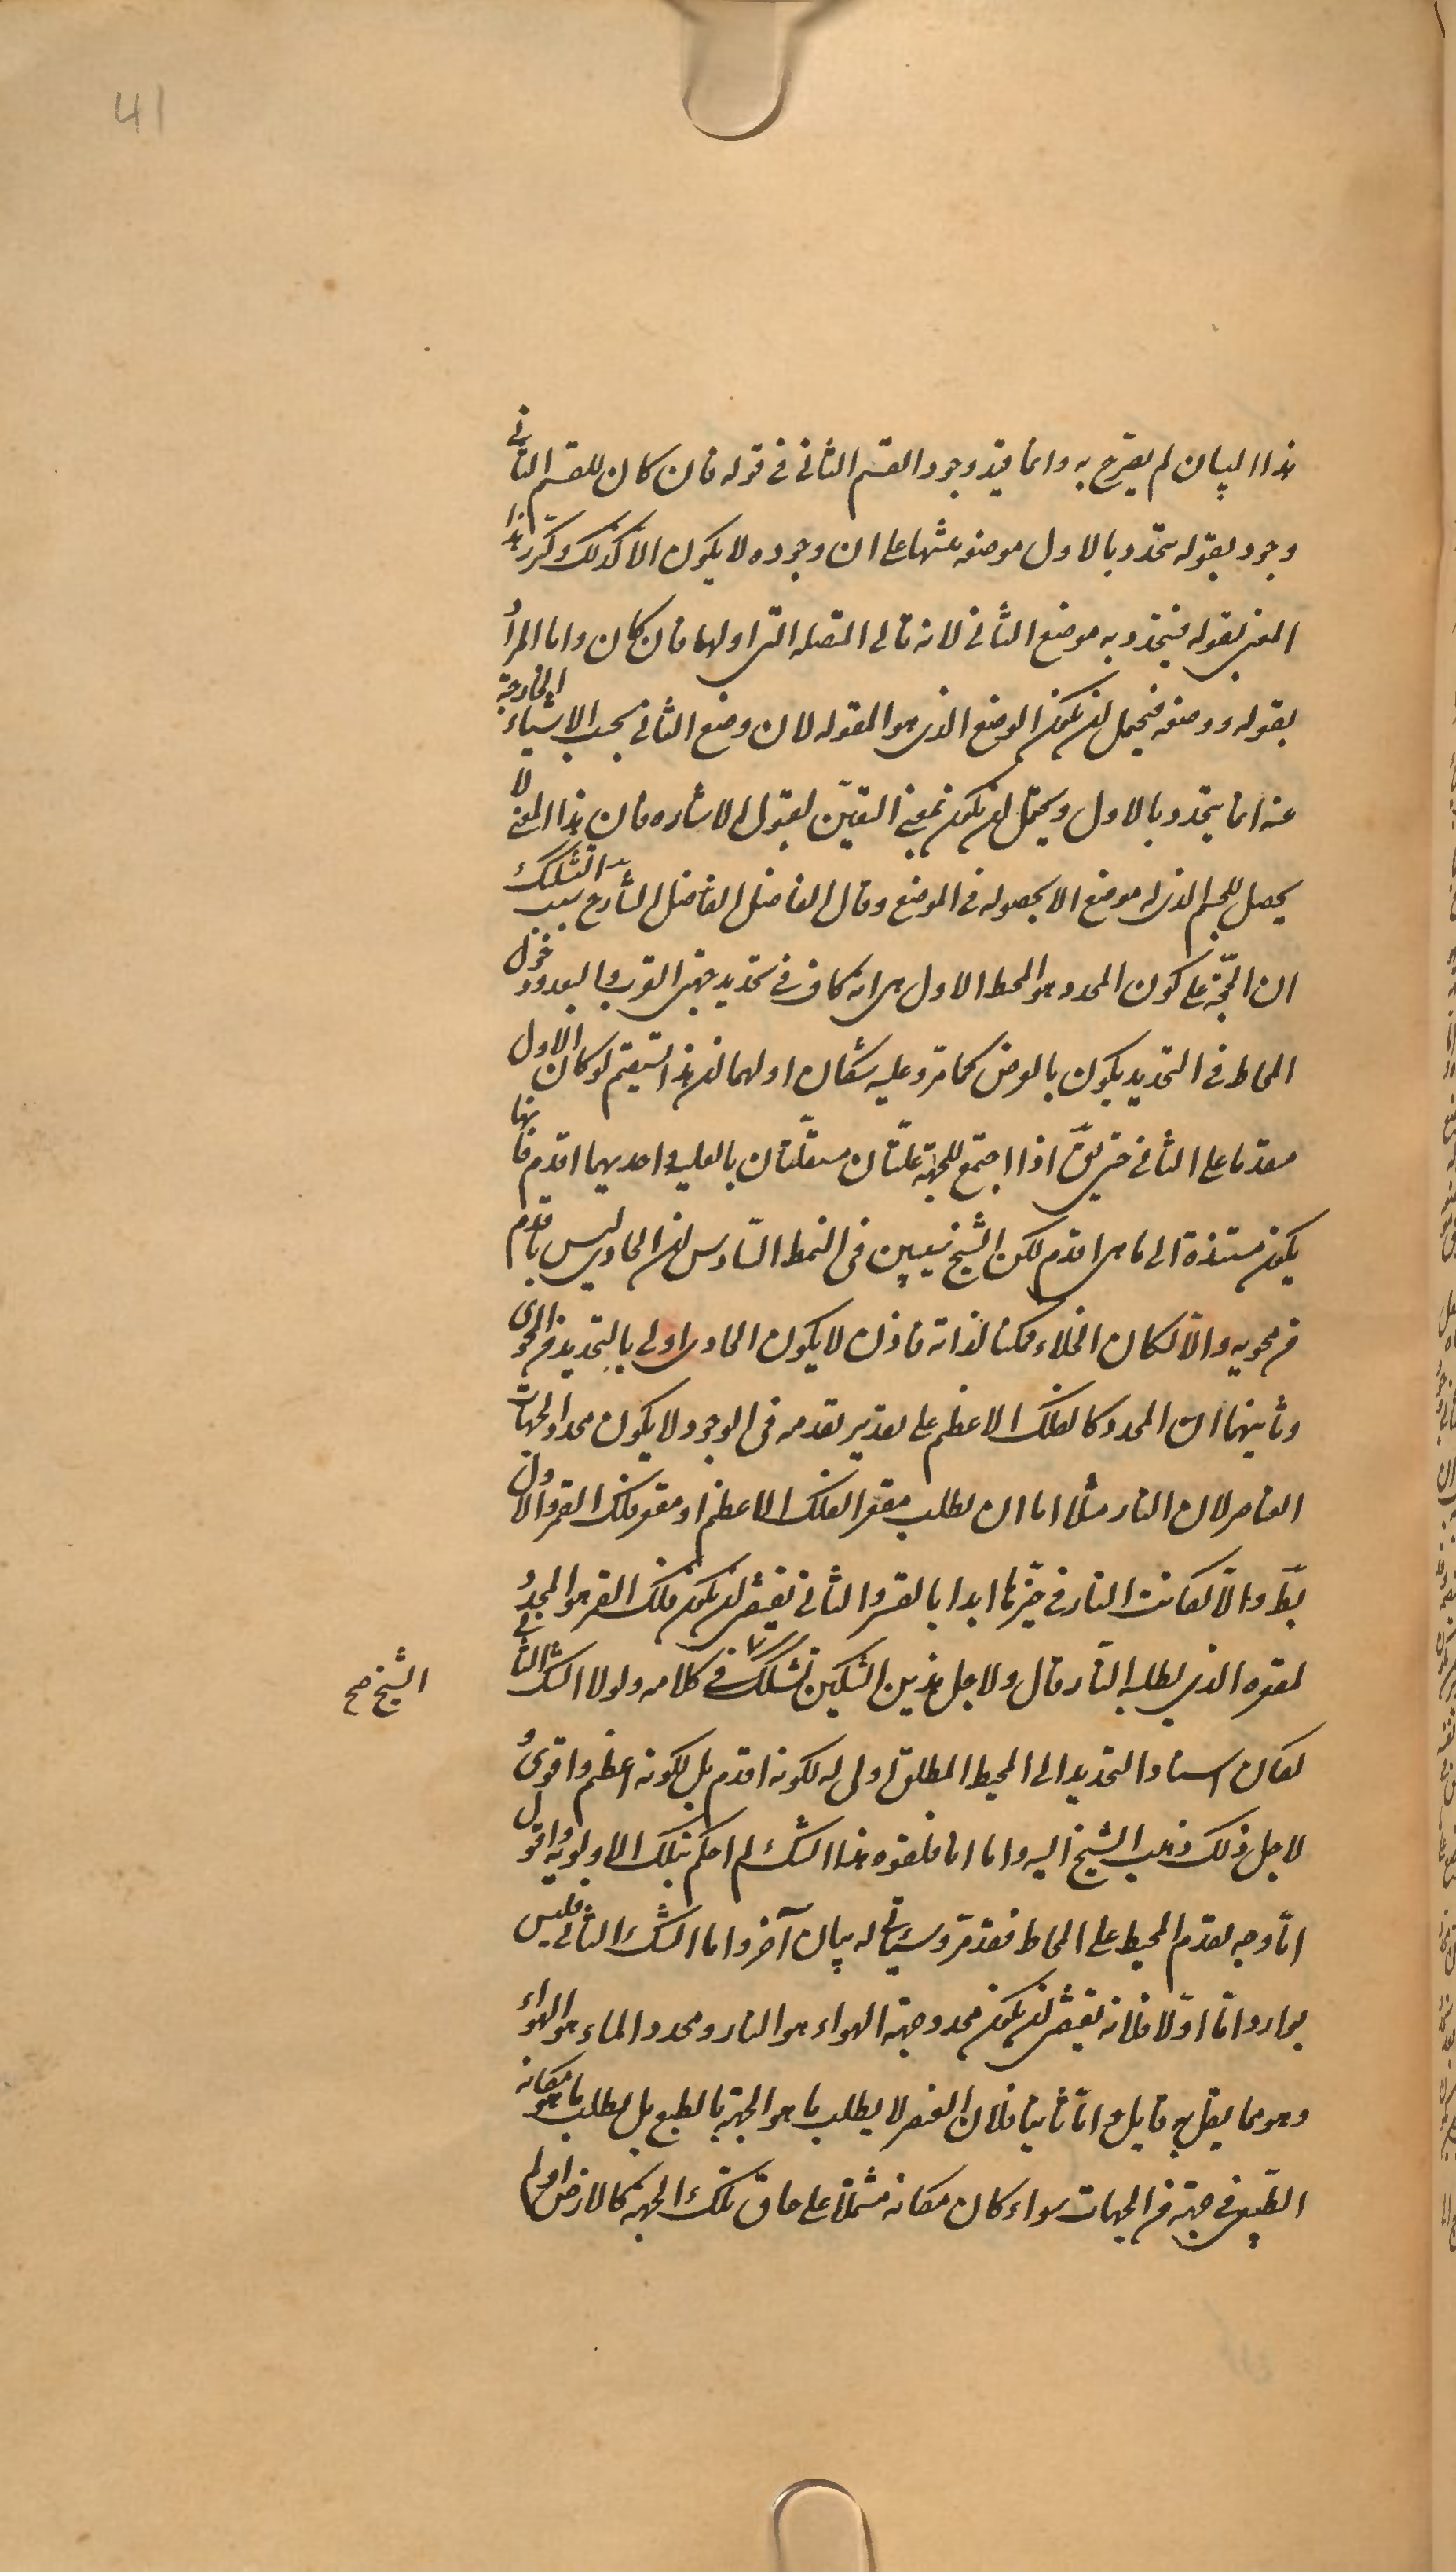 41
هذا البيان لم يصرح به وانما قيد وجود القسم الثانى فى قوله فان كان للقسم الثانى
وجود بقوله يتحدد بالاول موضعه منبها على ان وجوده لا يكون الا كذلك وكرر هذا
المعنى بقوله فيتحدد به موضع الثانى لانه تالى المتصله التى اولها فان كان واما المراد
بقوله ووضعه فيحتمل ان يكون الوضع الذى هو المقوله لان وضع الثانى بحسب الاشياء الخارجة
عنه انما يتحدد بالاول ويحتمل ان يكون بمعنى التعين لقبول الاشاره فان هذا المعنى لا
يحصل للجسم الذى له موضع الا بحصوله فى الموضع وقال الفاضل الفاضل الشارح سبب التشكك
ان الحجة على كون المحدد هو المحيط الاول هى انه كاف فى تحديد جهتى القرب والبعد ودخول
المحاط فى التحديد يكون بالعرض كما مر وعليه شكان اولهما ان هذا يستقيم لو كان الاول
متقدما على الثانى حتى يق اذا اجتمع للجهة علتان مستقلتان بالعلية احديهما اقدم فانها
يكون مستندة الى ما هى اقدم لكن الشيخ سيبين فى النمط السادس ان الحاوى ليس باقدم
من محويه والا لكان الخلاء ممكنا لذاته فاذن لا يكون الحاوى اولى بالتحديد من المحوى
وثانيهما ان المحدد كالفلك الاعظم على تقدير تقدمه فى الوجود لا يكون محددا لجهات
العناصر لان النار مثلا اما ان يطلب مقعر الفلك الاعظم او مقعر فلك القمر والاول
بط والا لكانت النار فى حيزها ابدا بالقسر والثانى يقتضى ان يكون فلك القمر هو المحدد
لمقعره الذى يطلبه النار قال ولاجل هذين الشكين تشكك فى كلامه ولولا الشك الثانى
الشيخ صح
لكان اسناد التحديد الى المحيط المطلق اولى لا لكونه اقدم بل لكونه اعظم واقوى و
لاجل ذلك ذهب الشيخ اليه واما انا فلقوه هذا الشك لم احكم بتلك الاولويه واقول
اما وجه تقدم المحيط على المحاط فقد مر وسياتى له بيان آخر واما الشك الثانى فليس
بوارد اما اولا فلانه يقتضى ان يكون محدد جهة الهواء هو النار ومحدد الماء هو الهواء
وهو مما يقل به قايل واما ثانيا فلان العنصر لا يطلب ما هو الجهة بالطبع بل يطلب ما هو مكانه
الطبيعى فى جهة من الجهات سواء كان مكانه مشتملا على حاق تلك الجهة كالارض او لم